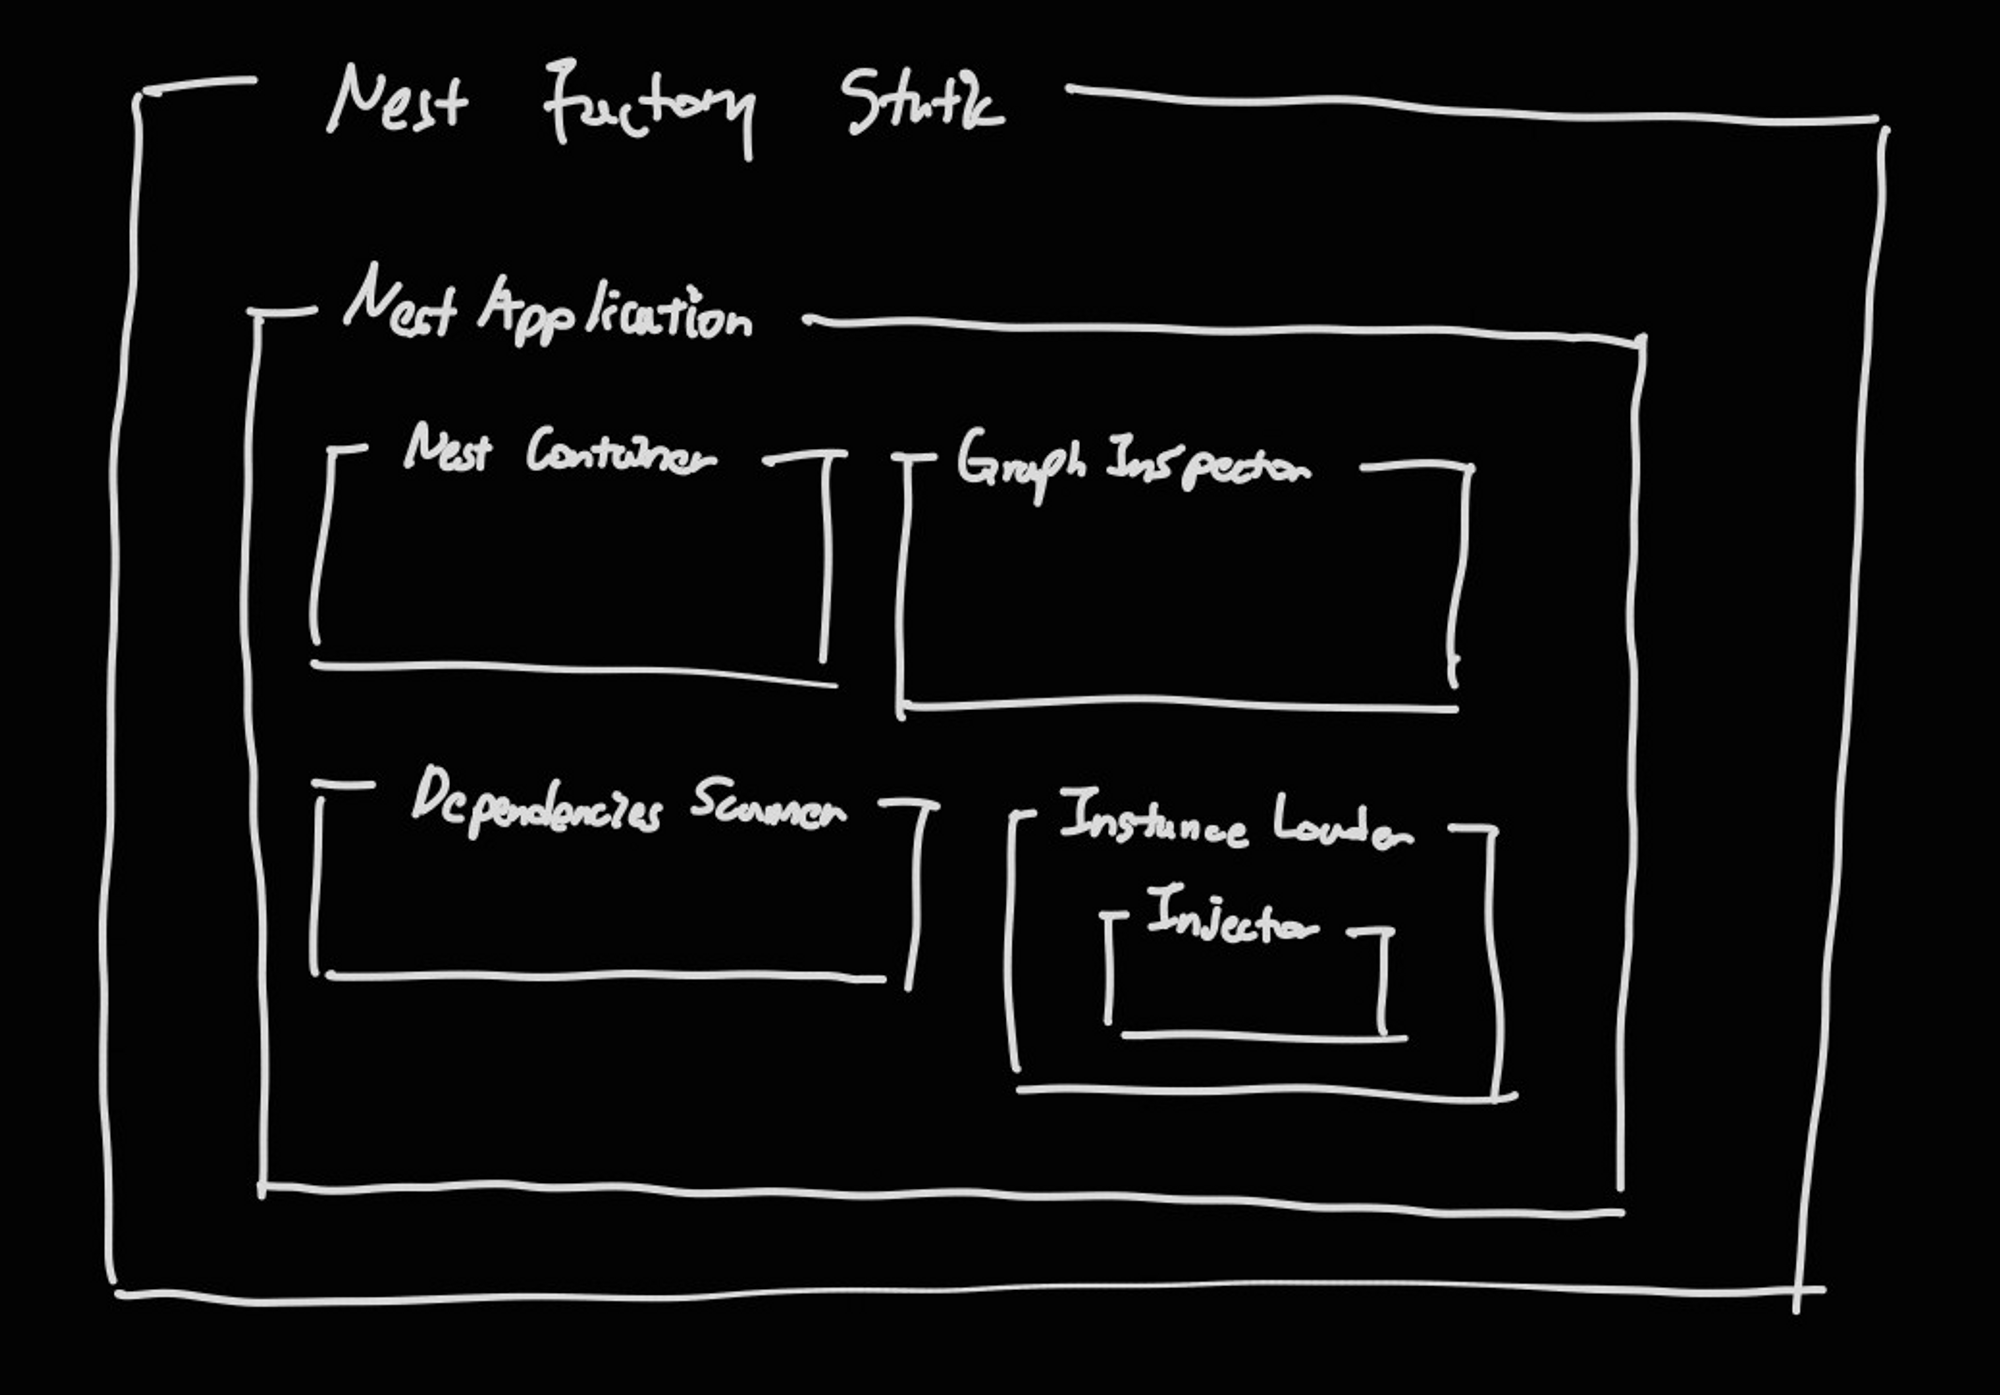 Nest Factory Static
Nest Application
Nest Container
Graph Inspector
Dependencies Scanner
Instance Loader
Injector